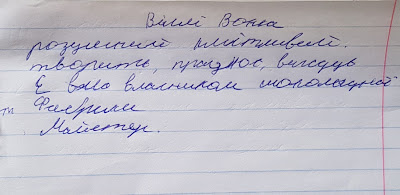 Віллі Вонка
розумний кмітливий.
творить, працює, вигадує
Є власником шоколадної
ти Фабрики
Майстер.